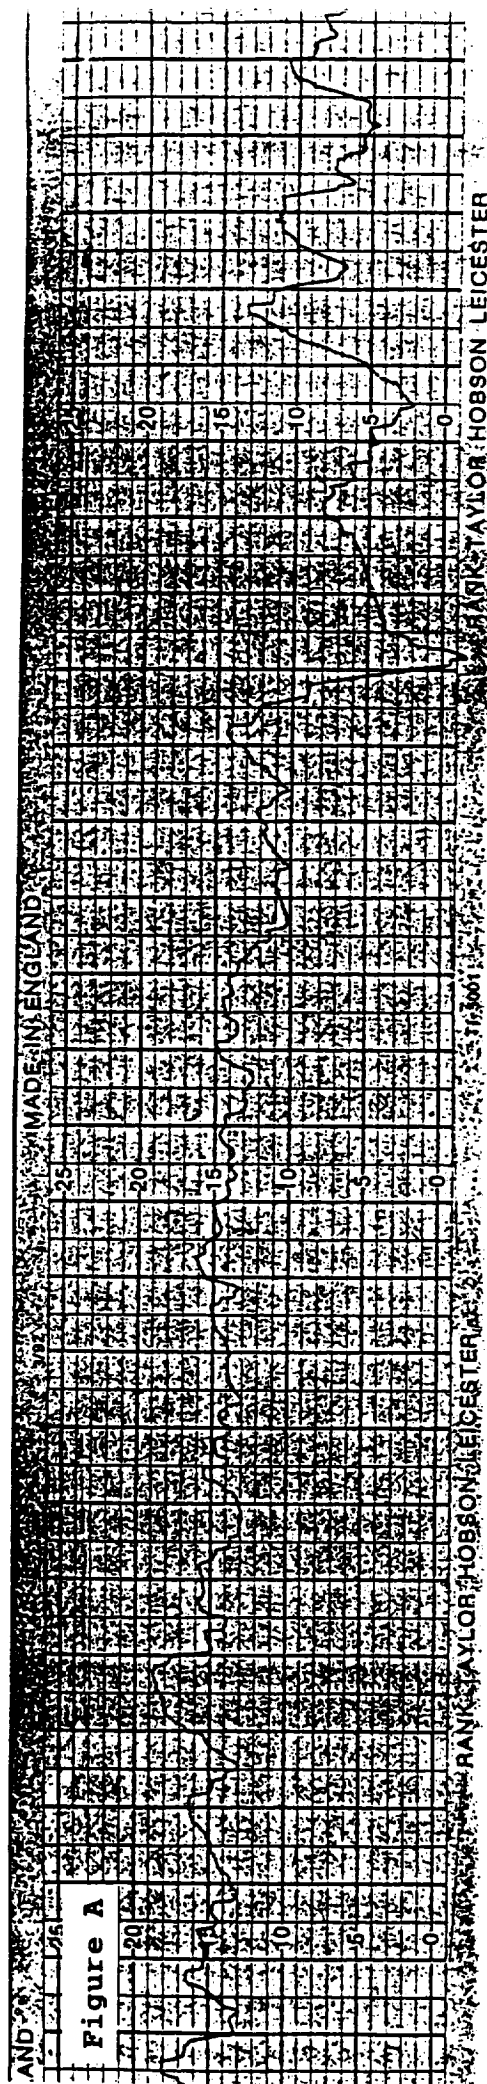 AND MADE IN ENGLAND
Figure A
25
20 20 20
15 15
10 10 10
5 5 5
0 0 0
RANK TAYLOR HOBSON LEICESTER RANK TAYLOR HOBSON LEICESTER